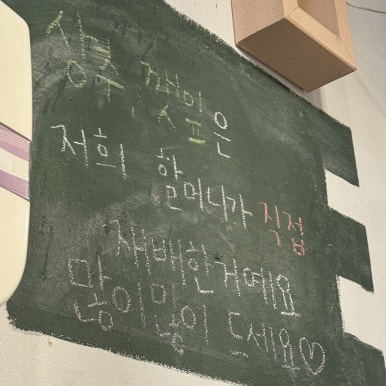 상추 깻잎은
저희 할머니가 직접
재배한거예요
많이많이 드세요♡